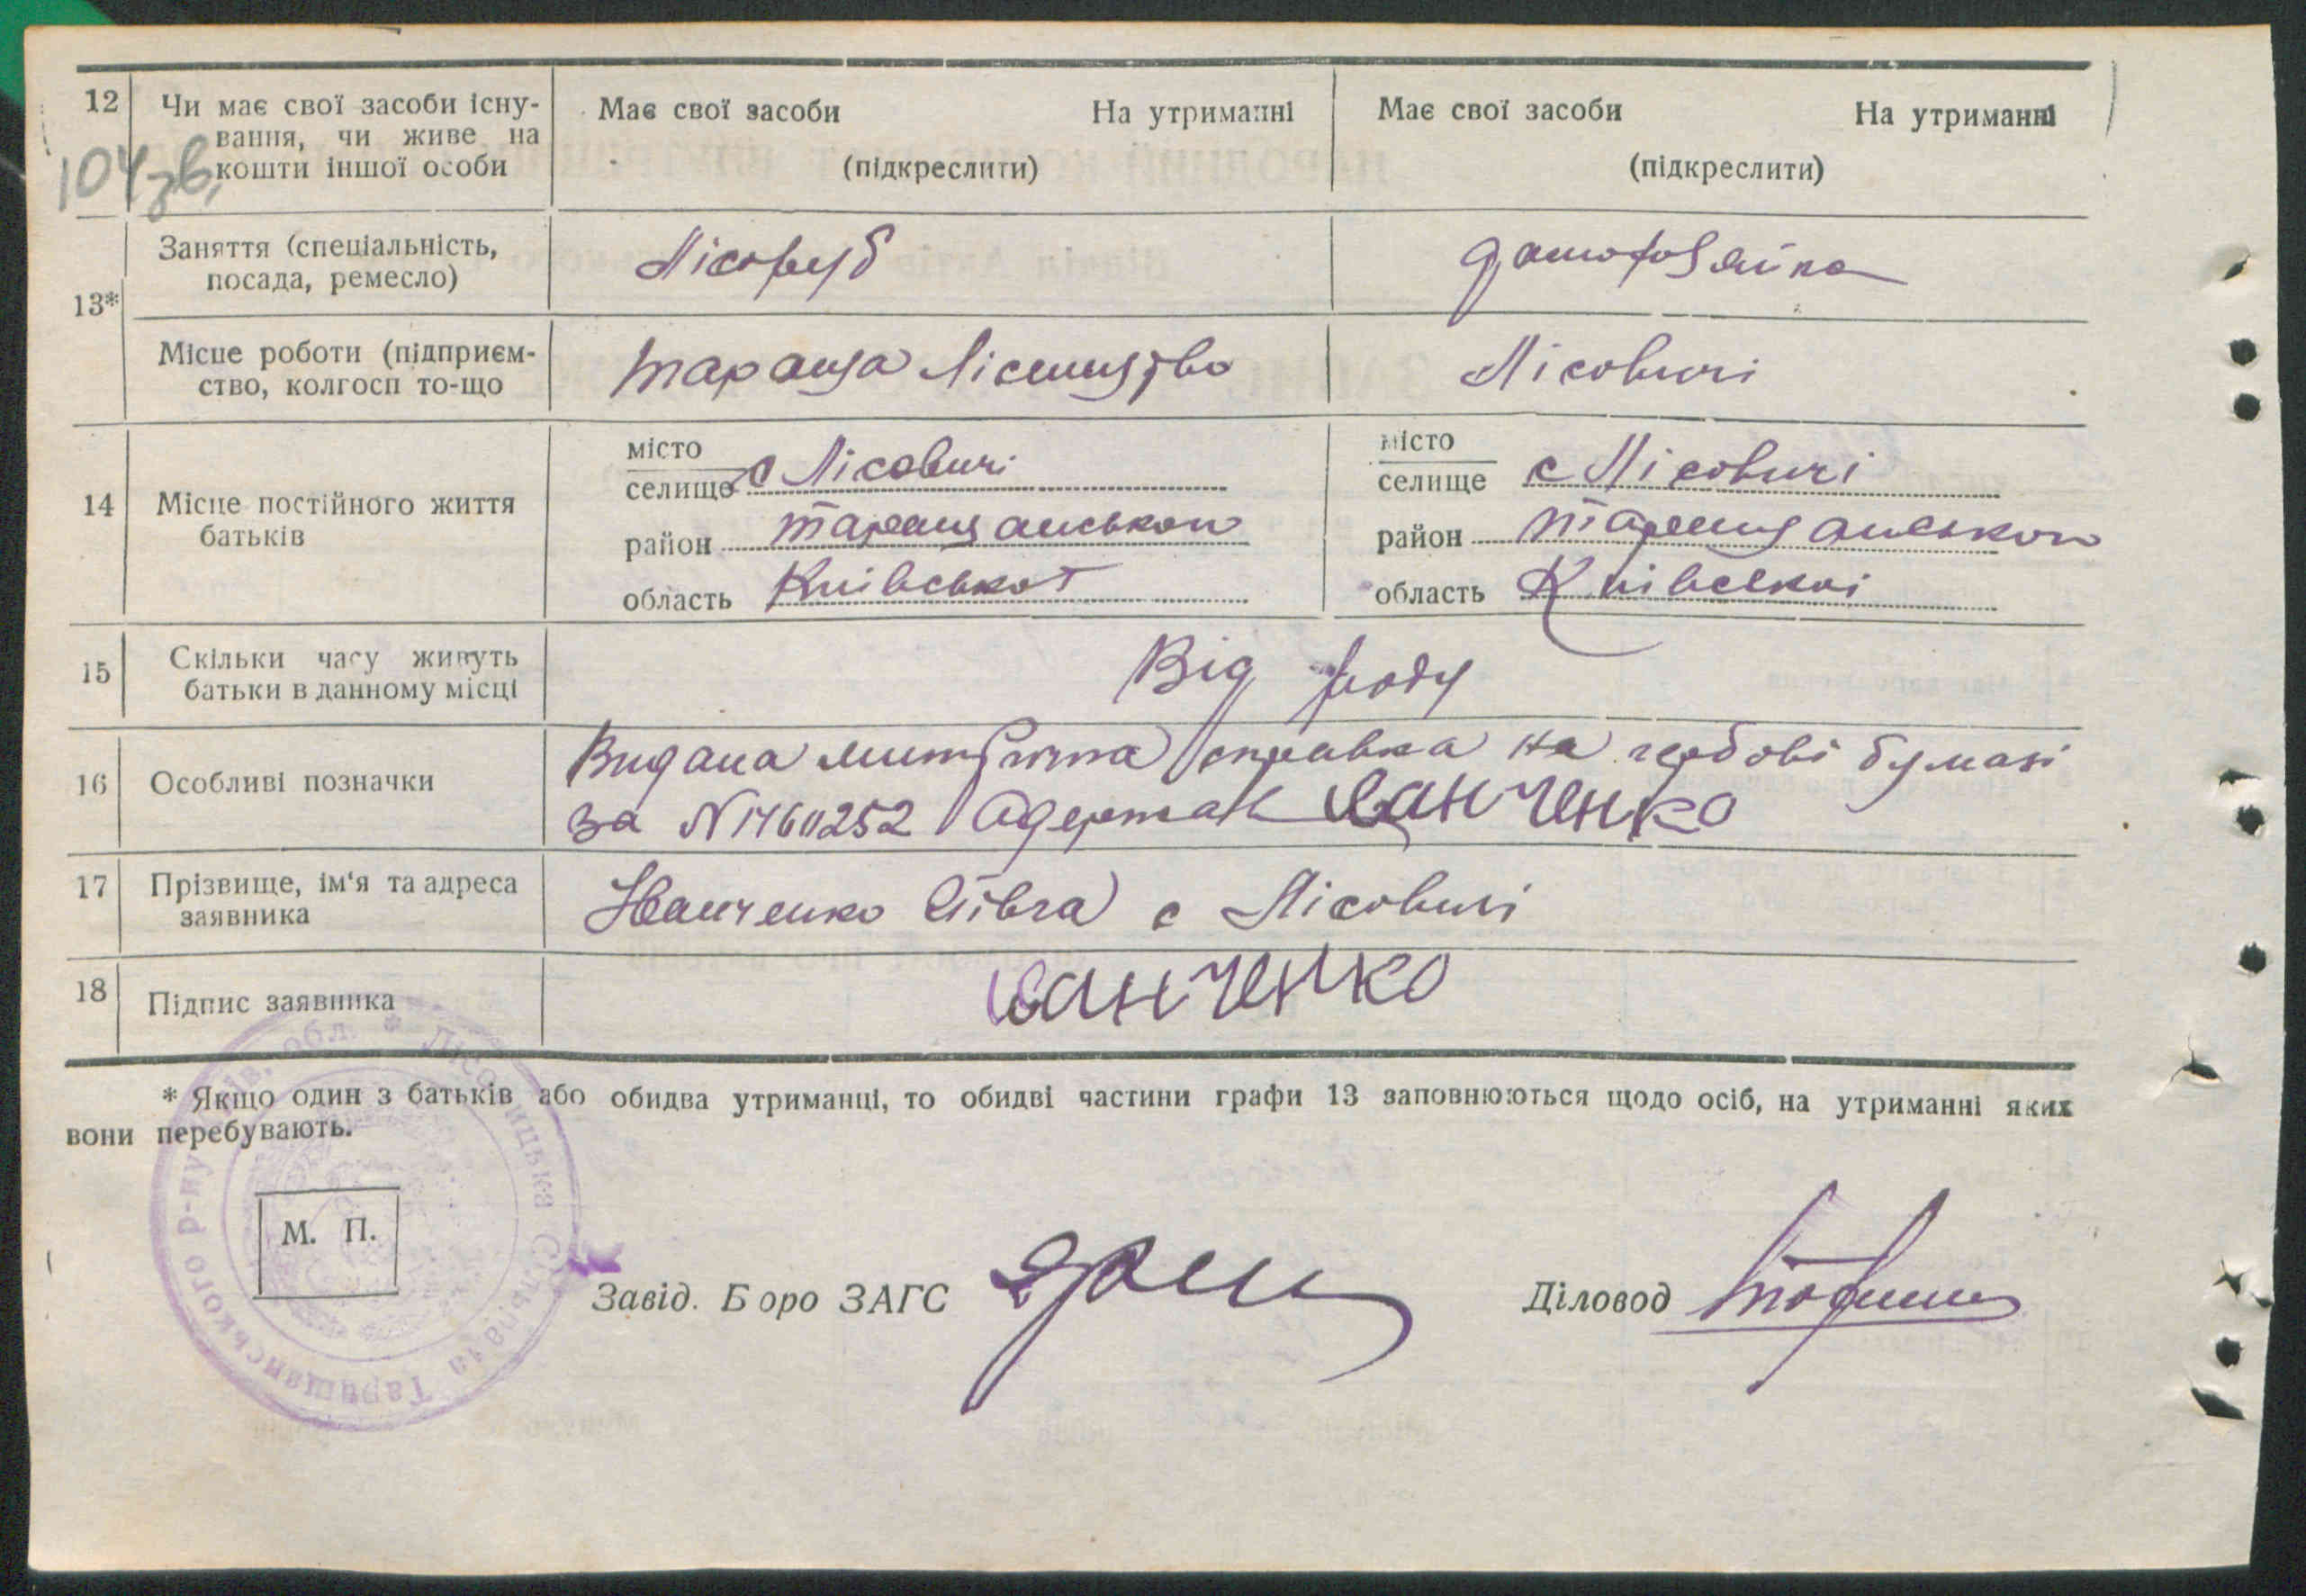 12
Чи має свої засоби існу-
вання, чи живе на
кошти іншої особи
Має свої засоби На утриманні
(підкреслити)
Має свої засоби На утриманні
(підкреслити)
104 зв.
13*
Заняття (спеціальність,
посада, ремесло)
Лісоруб
домогосяйка
Місце роботи (підприєм-
ство, колгосп то-що
Тараща Лісництво
Лісовичі
14
Місце постійного життя
батьків
місто
селище с Лісовичі
район Таращанськои
область Київської
місто
селище с Лісовичі
район Таращанськои
область Київської
15
Скільки часу живуть
батьки в данному місці
Від роду
16
Особливі позначки
Видана метрична справка на гербові бумазі
за N 1460252 Одержал Іванченко
17
Прізвище, ім'я та адреса
заявника
Іванченко Півга с Лісовичі
18
Підпис заявника
Іванченко
* Якщо один з батьків або обидва утриманці, то обидві частини графи 13 заповнюються щодо осіб, на утриманні яких
вони перебувають.
М. П.
Лісовицька Сільрада Таращанського р-ну Київ. обл. *
Завід. Бюро ЗАГС
Діловод